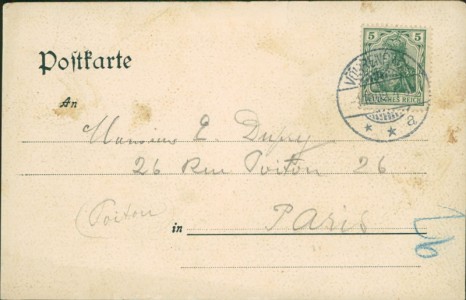 Postkarte
5 5
DEUTSCHES REICH
a
An
Monsieur E. Dupuy
26 Rue Poitou 26
(Poitou
in Paris